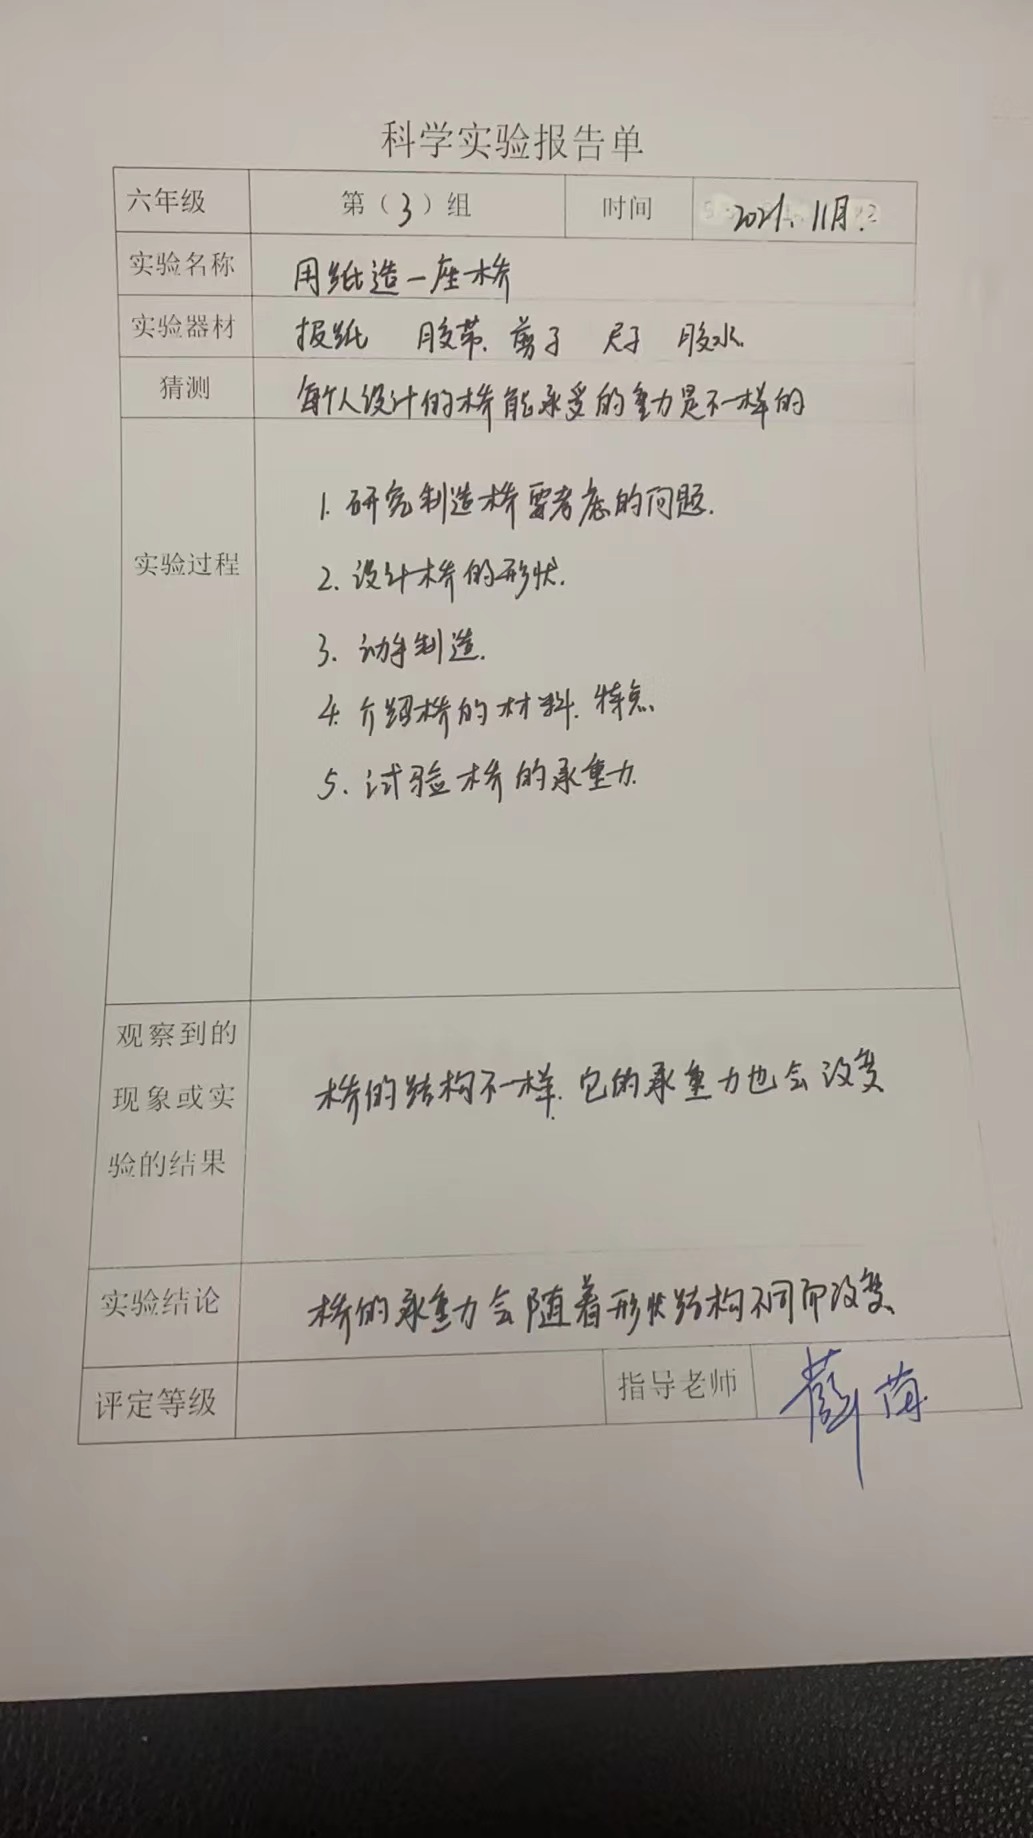 科学实验报告单
六年级 第（3）组 时间 2021.11月
实验名称 用纸造一座桥
实验器材 报纸 胶带 剪子 尺子 胶水
猜测 每个人设计的桥能承受的重力是不一样的
实验过程
1. 研究制造桥要考虑的问题.
2. 设计桥的形状.
3. 动手制造.
4. 介绍桥的材料. 特点
5. 试验桥的承重力.
观察到的
现象或实
验的结果
桥的结构不一样. 它的承重力也会改变
实验结论 桥的承重力会随着形状结构不同而改变
评定等级 指导老师